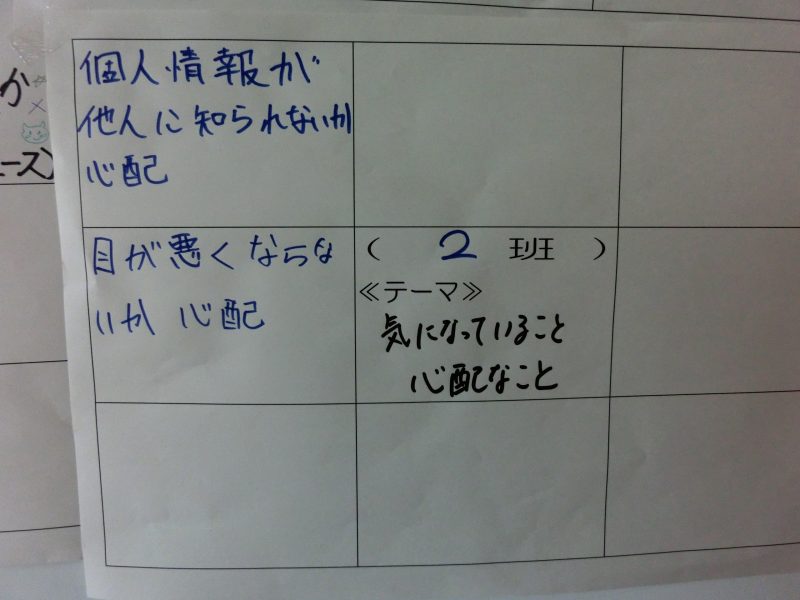 個人情報が
他人に知られないか
心配
目が悪くならな
いか 心配
( 2 班 )
≪テーマ≫
気になっていること
心配なこと
か
ース)